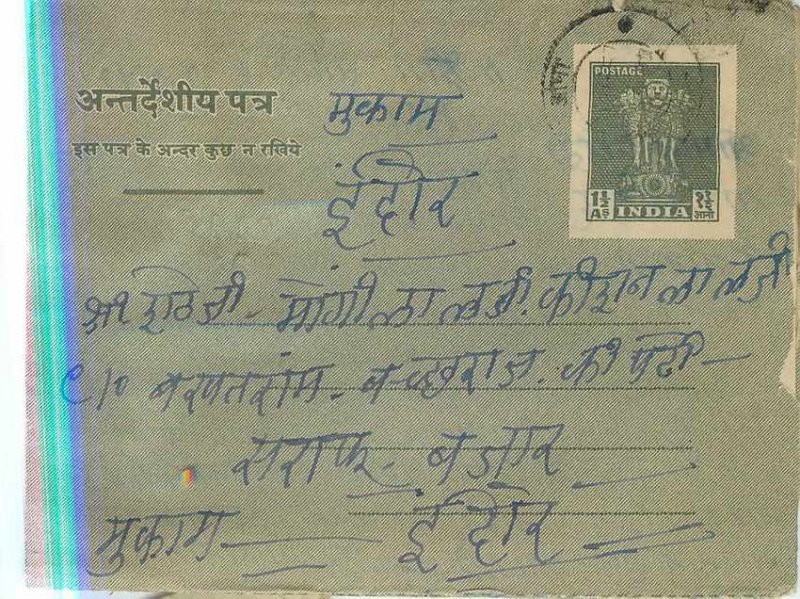 अन्तर्देशीय पत्र
इस पत्र के अन्दर कुछ न रखिये
मुकाम
इंदौर
POSTAGE
1½ As INDIA १½ आना
मांगीलालजी. कीशनलालजी
C/o बखतराम - बच्छराज. की पेढी
सराफ - बजार
मुकाम
इंदौर